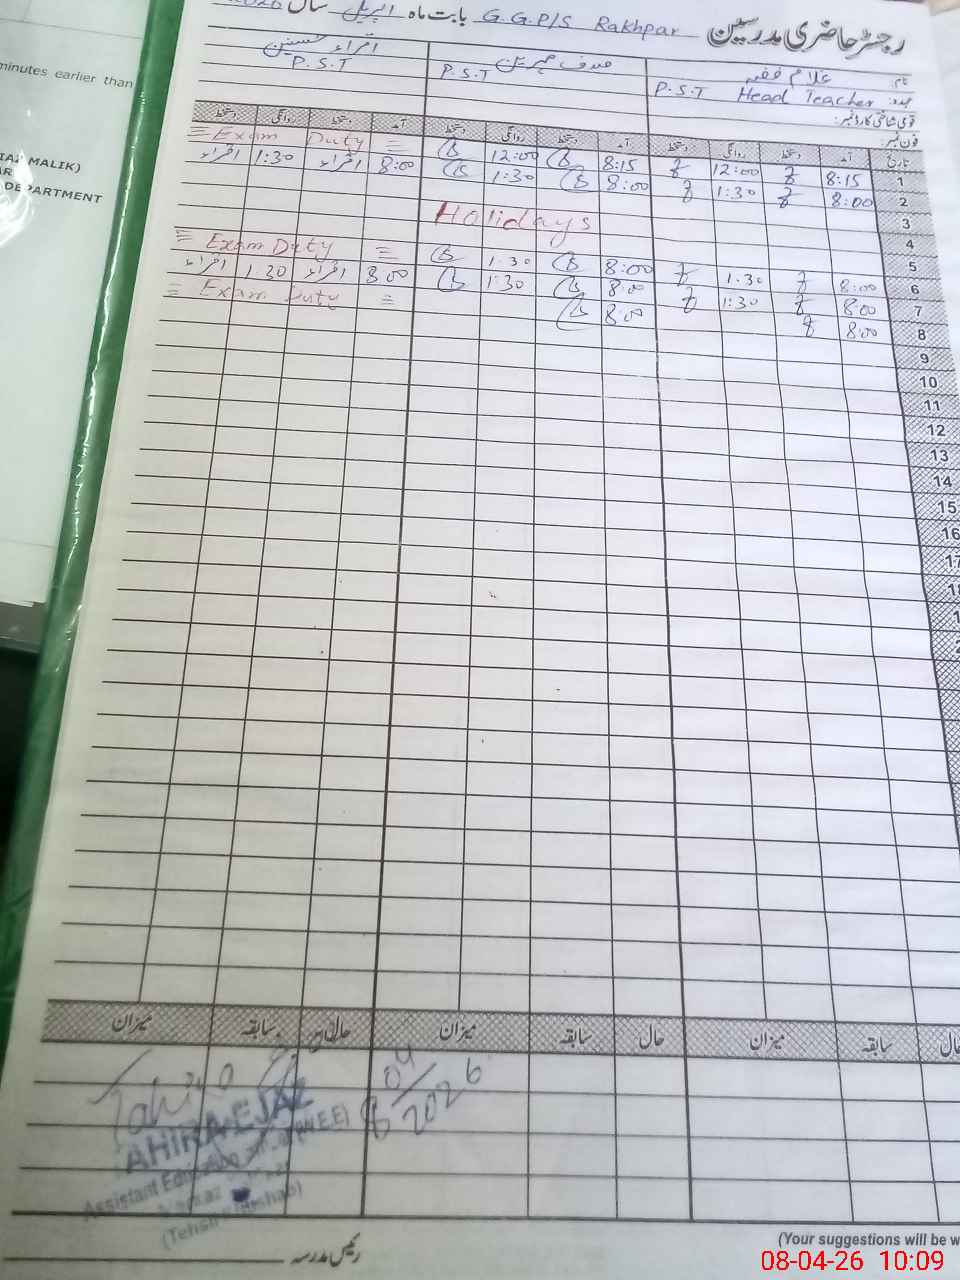 minutes earlier than
IAZ MALIK)
AR
DEPARTMENT
رجسٹر حاضری مدرسین G.G.P/S Rakhpar بابت ماہ اپریل سال 2026
نام: غلام فقیر
صدف مہرین
اقراء حسنین
عہدہ: Head Teacher P.S.T
P.S.T
P.S.T
قومی شناختی کارڈ نمبر:
فون نمبر:
تاریخ آمد دستخط روانگی دستخط آمد دستخط روانگی دستخط آمد دستخط روانگی دستخط
1 8:15 12:00 8:15 12:00 Exam Duty
2 8:00 1:30 8:00 1:30 8:00 اقراء 1:30 اقراء
3
4 Holidays
5
6 8:00 1.30 8:00 1.30 Exam Duty
7 8:00 1:30 8:00 1:30 8:00 اقراء 1.20 اقراء
8 8:00 8:00 Exam Duty
9
10
11
12
13
14
15
16
17
18
میزان سابقہ حال میزان سابقہ حال میزان سابقہ حال
Tahira
8/04/2026
AHIRA EJAZ
Assistant Education (W.E.E)
(Tehsil
رئیس مدرسہ
(Your suggestions will be w
08-04-26 10:09